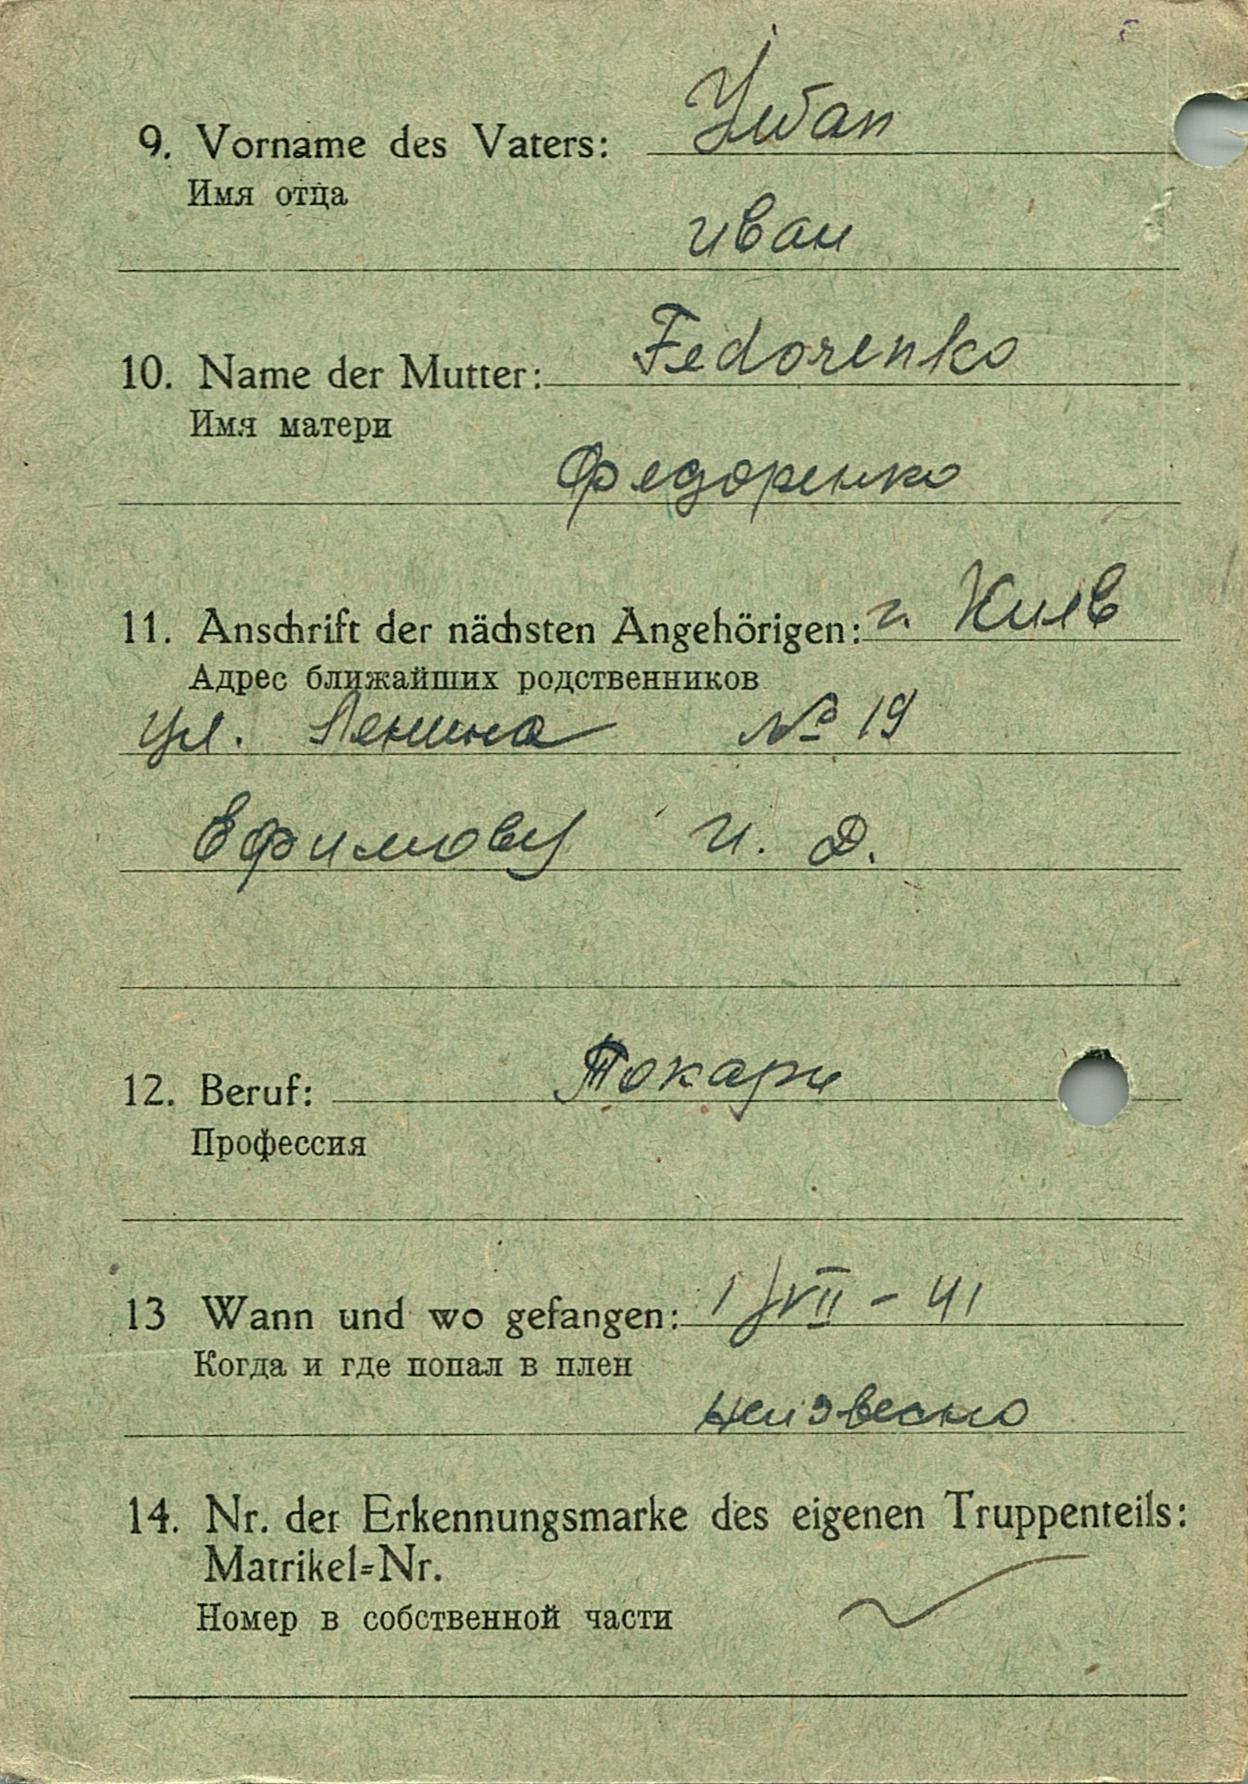 9. Vorname des Vaters: Iwan
Имя отца
иван
10. Name der Mutter: Fedorenko
Имя матери
Федоренко
11. Anschrift der nächsten Angehörigen: г. Киев
Адрес ближайших родственников
ул. Ленина № 19
Ефимову И. Д.
12. Beruf: Токарь
Профессия
13 Wann und wo gefangen: 1/VII - 41
Когда и где попал в плен
неизвесно
14. Nr. der Erkennungsmarke des eigenen Truppenteils:
Matrikel=Nr.
Номер в собственной части